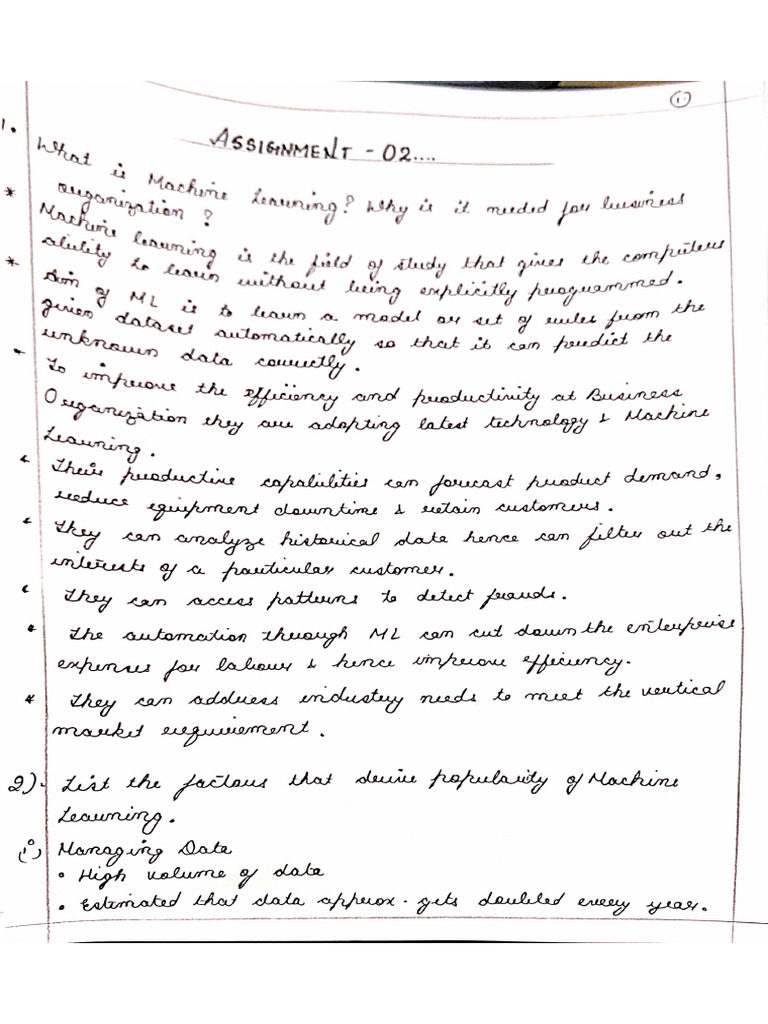 ①
ASSIGNMENT - 02....
1. What is Machine Learning? Why is it needed for business
organization?
* Machine learning is the field of study that gives the computers
ability to learn without being explicitly programmed.
* Aim of ML is to learn a model or set of rules from the
given dataset automatically so that it can predict the
unknown data correctly.
* To improve the efficiency and productivity at Business
Organization they are adopting latest technology & Machine
Learning.
* Their productive capabilities can forecast product demand,
reduce equipment downtime & retain customers.
* They can analyze historical data hence can filter out the
interests of a particular customer.
* They can access patterns to detect frauds.
* The automation through ML can cut down the enterprise
expenses for labour & hence improve efficiency.
* They can address industry needs to meet the vertical
market requirement.
2). List the factors that derive popularity of Machine
Learning.
(i) Managing Data
• High volume of data
• Estimated that data approx. gets doubled every year.